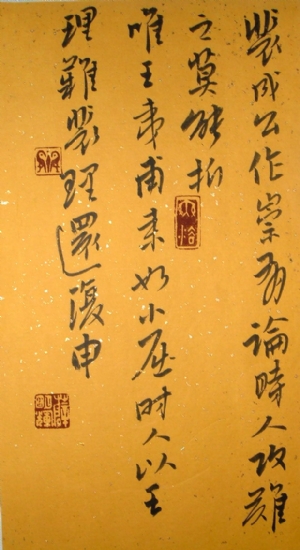 裴成公作崇有論時人攻難
之莫能折
唯王夷甫来如小屈时人以王
理難裴理還復申